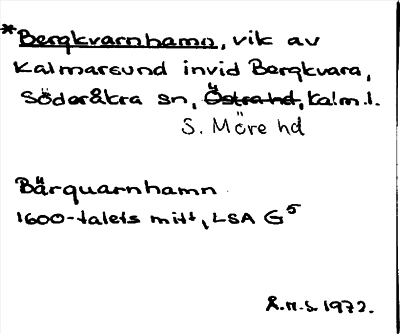 *Bergkvarnhamn, vik av
Kalmarsund invid Bergkvara,
Söderåkra sn, Östra hd, Kalm.l.
S. Möre hd
Bärquarnhamn
1600-talets mitt, LSA G5
R.M.S. 1972.